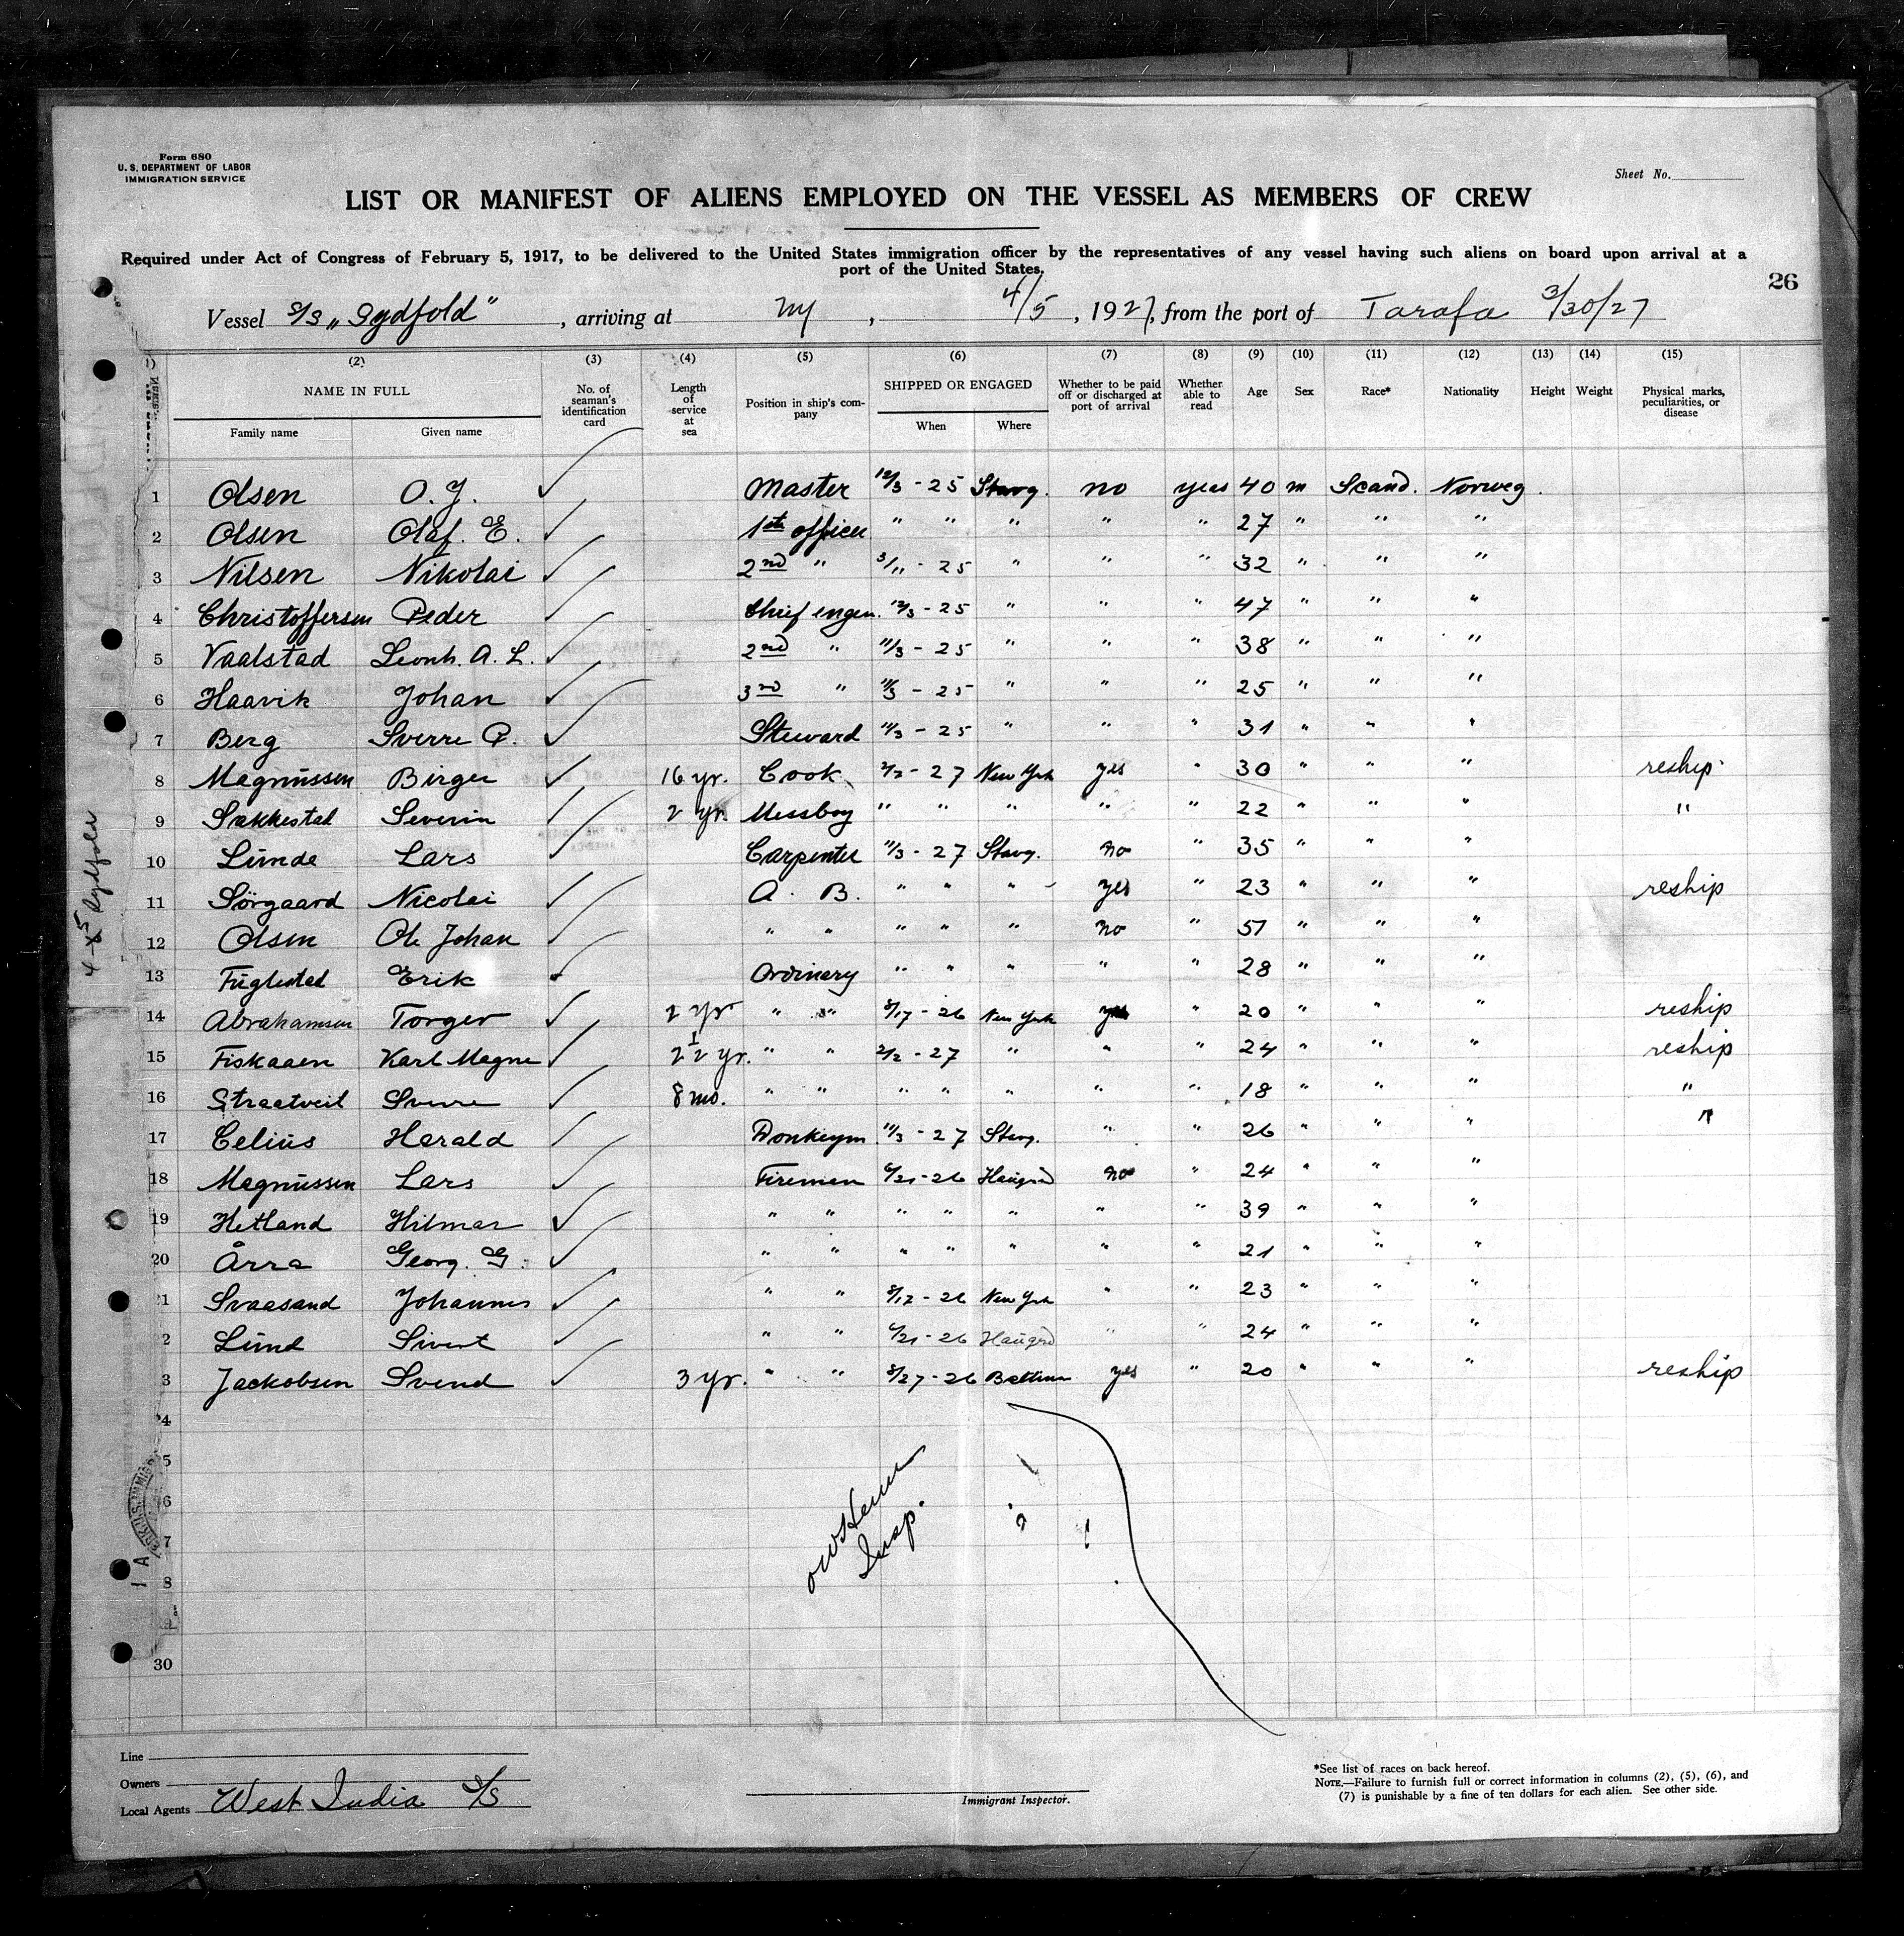 Form 680
U. S. DEPARTMENT OF LABOR
IMMIGRATION SERVICE
Sheet No.
LIST OR MANIFEST OF ALIENS EMPLOYED ON THE VESSEL AS MEMBERS OF CREW
Required under Act of Congress of February 5, 1917, to be delivered to the United States immigration officer by the representatives of any vessel having such aliens on board upon arrival at a
port of the United States.
26
Vessel S/S „Sydfold" , arriving at NY , 4/5 , 1927, from the port of Tarafa 3/30/27
(2) (3) (4) (5) (6) (7) (8) (9) (10) (11) (12) (13) (14) (15)
NAME IN FULL No. of seaman's identification card Length of service at sea Position in ship's company SHIPPED OR ENGAGED Whether to be paid off or discharged at port of arrival Whether able to read Age Sex Race* Nationality Height Weight Physical marks, peculiarities, or disease
Family name Given name When Where
1 Olsen O. J. Master 12/3 - 25 Stavg. no yes 40 m Scand. Norweg.
2 Olsen Olaf. E. 1st officer " " " " " 27 " " "
3 Nilsen Nikolai 2nd " 3/11 - 25 " " " 32 " " "
4 Christoffersen Peder Chief engen. 12/3 - 25 " " " 47 " " "
5 Vaalstad Leonh. A. L. 2nd " 11/3 - 25 " " " 38 " " "
6 Haavik Johan 3rd " 11/3 - 25 " " " 25 " " "
7 Berg Sverre P. Steward 11/3 - 25 " " " 31 " " "
8 Magnussen Birger 16 yr. Cook 2/2 - 27 New York yes " 30 " " " reship
9 Sakkestad Severin 2 yr. Messboy " " " " " 22 " " " "
10 Lunde Lars Carpenter 11/3 - 27 Stavg. no " 35 " " "
11 Sörgaard Nicolai A. B. " " " yes " 23 " " " reship
12 Olsen Ole Johan " " " " " no " 57 " " "
13 Fuglestad Erik Ordinary " " " " " 28 " " "
14 Abrahamsen Torger 2 yr " " 8/17 - 26 New York yes " 20 " " " reship
15 Fiskaaen Karl Magne 2 1/2 yr. " " 2/2 - 27 " " " 24 " " " reship
16 Straatveit Sverre 8 mo. " " " " " " " 18 " " " "
17 Celius Harald Donkeym 11/3 - 27 Stavg. " " 26 " " " "
18 Magnussen Lars Firemen 6/21 - 26 Haugsd no " 24 " " "
19 Hetland Hilmar " " " " " " " 39 " " "
20 Årra Georg. G. " " " " " " " 21 " " "
1 Svaasand Johannes " " 8/17 - 26 New York " " 23 " " "
2 Lund Sivert " " 6/21 - 26 Haugsd " " 24 " " "
3 Jackobsen Svend 3 yr. " " 8/27 - 26 Baltimore yes " 20 " " " reship
4
5
6
7
8
9
30
Insp.
4-5 Sydfold
Line
Owners
Local Agents West India S/S
Immigrant Inspector.
*See list of races on back hereof.
NOTE.—Failure to furnish full or correct information in columns (2), (5), (6), and
(7) is punishable by a fine of ten dollars for each alien. See other side.